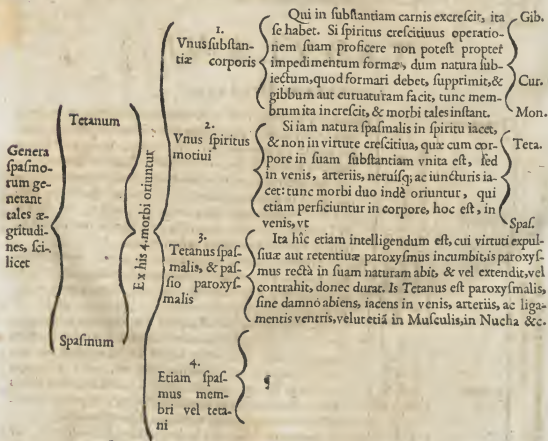 Genera
ſpaſmo-
rum ge-
nerant
tales æ-
gritudi-
nes, ſci-
licet
Tetanum
Spaſmum
Ex his 4. morbi oriuntur
1.
Vnus ſubſtan-
tiæ corporis
Qui in ſubſtantiam carnis excreſcit, ita
ſe habet. Si ſpiritus creſcitiuus operatio-
nem ſuam proficere non poteſt propter
impedimentum formæ, dum natura ſub-
iectum, quod formari debet, ſupprimit, &
gibbum aut curuaturam facit, tunc mem-
brum ita increſcit, & morbi tales inſtant.
Gib.
Cur.
Mon.
2.
Vnus ſpiritus
motiui
Si iam natura ſpaſmalis in ſpiritu iacet,
& non in virtute creſcitiua, quæ cum cor-
pore in ſuam ſubſtantiam vnita eſt, ſed
in venis, arteriis, neruiſq; ac iuncturis ia-
cet: tunc morbi duo indè oriuntur, qui
etiam perficiuntur in corpore, hoc eſt, in
venis, vt
Teta.
Spaſ.
3.
Tetanus ſpaſ-
malis, & paſ-
ſio paroxyſ-
malis
Ita hîc etiam intelligendum eſt, cui virtuti expul-
ſiuæ aut retentiuæ paroxyſmus incumbit, is paroxyſ-
mus rectà in ſuam naturam abit, & vel extendit, vel
contrahit, donec durat. Is Tetanus eſt paroxyſmalis,
ſine damno abiens, iacens in venis, arteriis, ac liga-
mentis ventris, velut etiã in Muſculis, in Nucha &c.
4.
Etiam ſpaſ-
mus mem-
bri vel teta-
ni